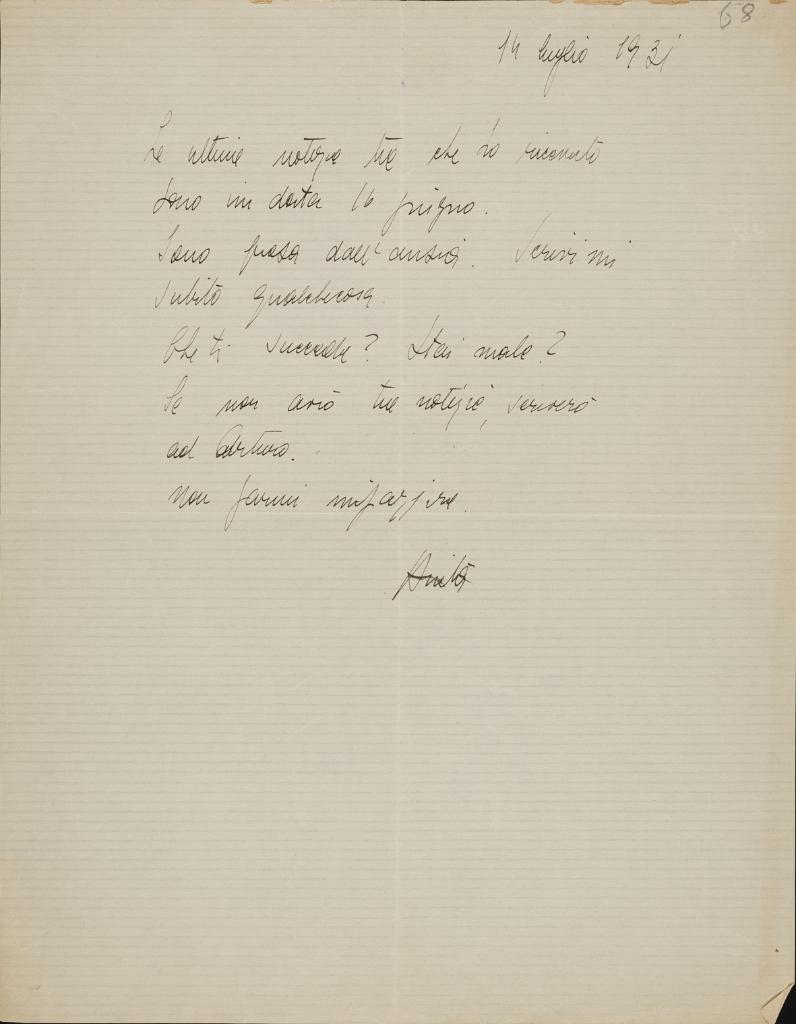 68
14 luglio 1931
Le ultime notizie tue che ho ricevuto
sono in data 16 giugno.
Sono presa dall'ansia. Scrivimi
subito qualchecosa.
Che ti succede? Stai male?
Se non avrò tue notizie, scriverò
ad Arturo.
Non farmi impazzire.
Anita